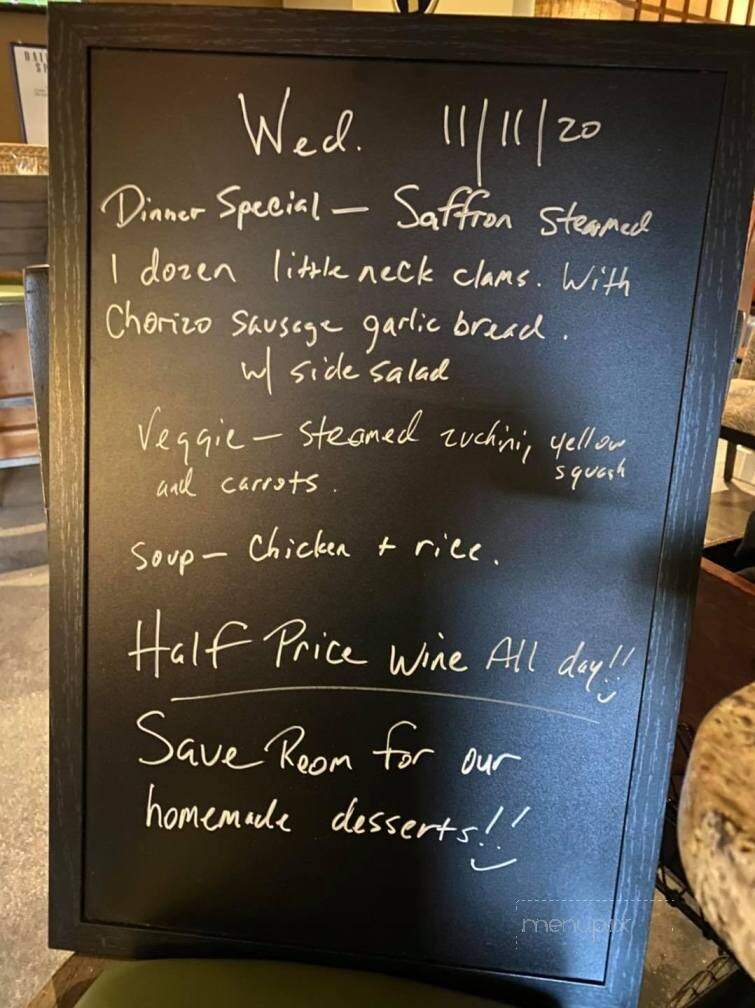 Wed. 11/11/20
Dinner Special - Saffron Steamed
1 dozen little neck clams. With
Chorizo Sausage garlic bread.
w/ side salad
Veggie - steamed zuchini, yellow
squash
and carrots.
Soup - Chicken + rice.
Half Price Wine All day!!
Save Room for our
homemade desserts!!
menupix